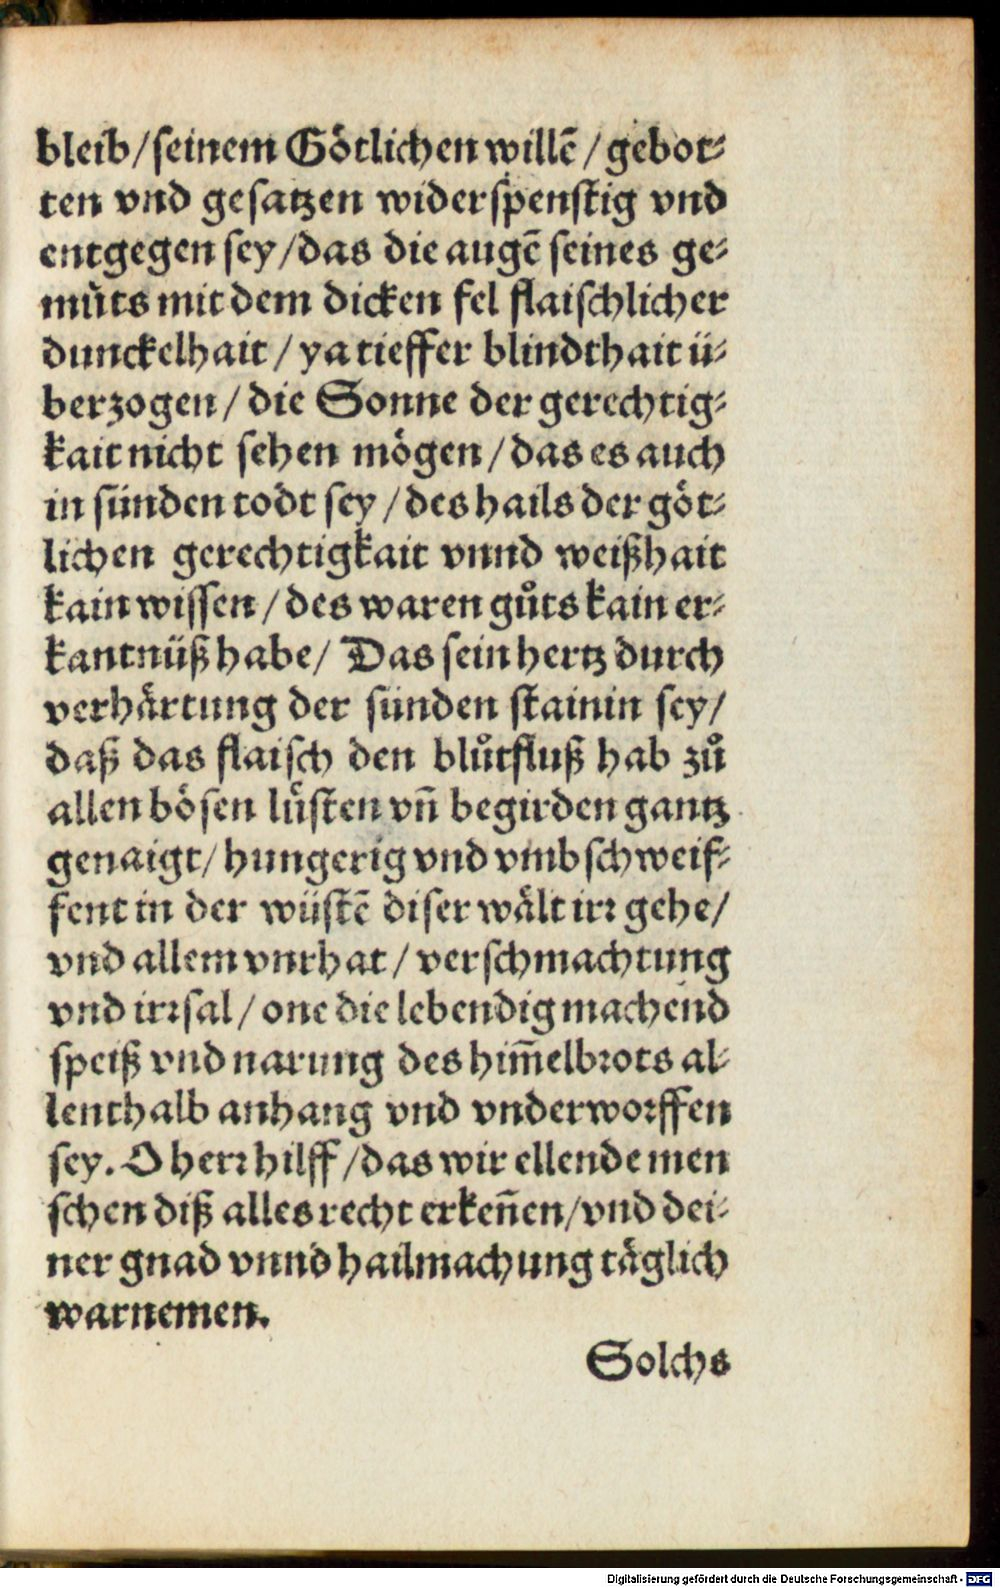 bleib/seinem Götlichen willē/gebot⸗
ten vnd gesatzen widerspenstig vnd
entgegen sey/das die augē seines ge⸗
můts mit dem dicken fel flaischlicher
dunckelhait/ya tieffer blindthait ü⸗
berzogen/die Sonne der gerechtig⸗
kait nicht sehen mögen/das es auch
in sünden todt sey/des hails der göt⸗
lichen gerechtigkait vnnd weißhait
kain wissen/des waren gůts kain er⸗
kantnüß habe/Das sein hertz durch
verhärtung der sünden stainin sey/
daß das flaisch den blůtfluß hab zů
allen bösen lüsten vñ begirden gantz
genaigt/hungerig vnd vmbschweif⸗
fent in der wüstē diser wält irꝛ gehe/
vnd allem vnrhat/verschmachtung
vnd irꝛsal/one die lebendigmachend
speiß vnd narung des him̄elbꝛots al⸗
lenthalb anhang vnd vnderwoꝛffen
sey. O herꝛ hilff/das wir ellende men
schen diß alles recht erkeñen/vnd dei⸗
ner gnad vnnd hailmachung täglich
warnemen.
Solchs
Digitalisierung gefördert durch die Deutsche Forschungsgemeinschaft - DFG